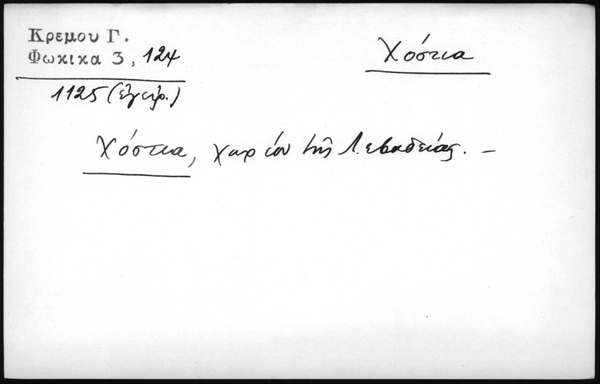 Κρεμου Γ.
Φωκικα 3, 124
Χόστια
1125 (ἔγγρ.)
Χόστια, χωρίον τῆς Λεβαδείας. –